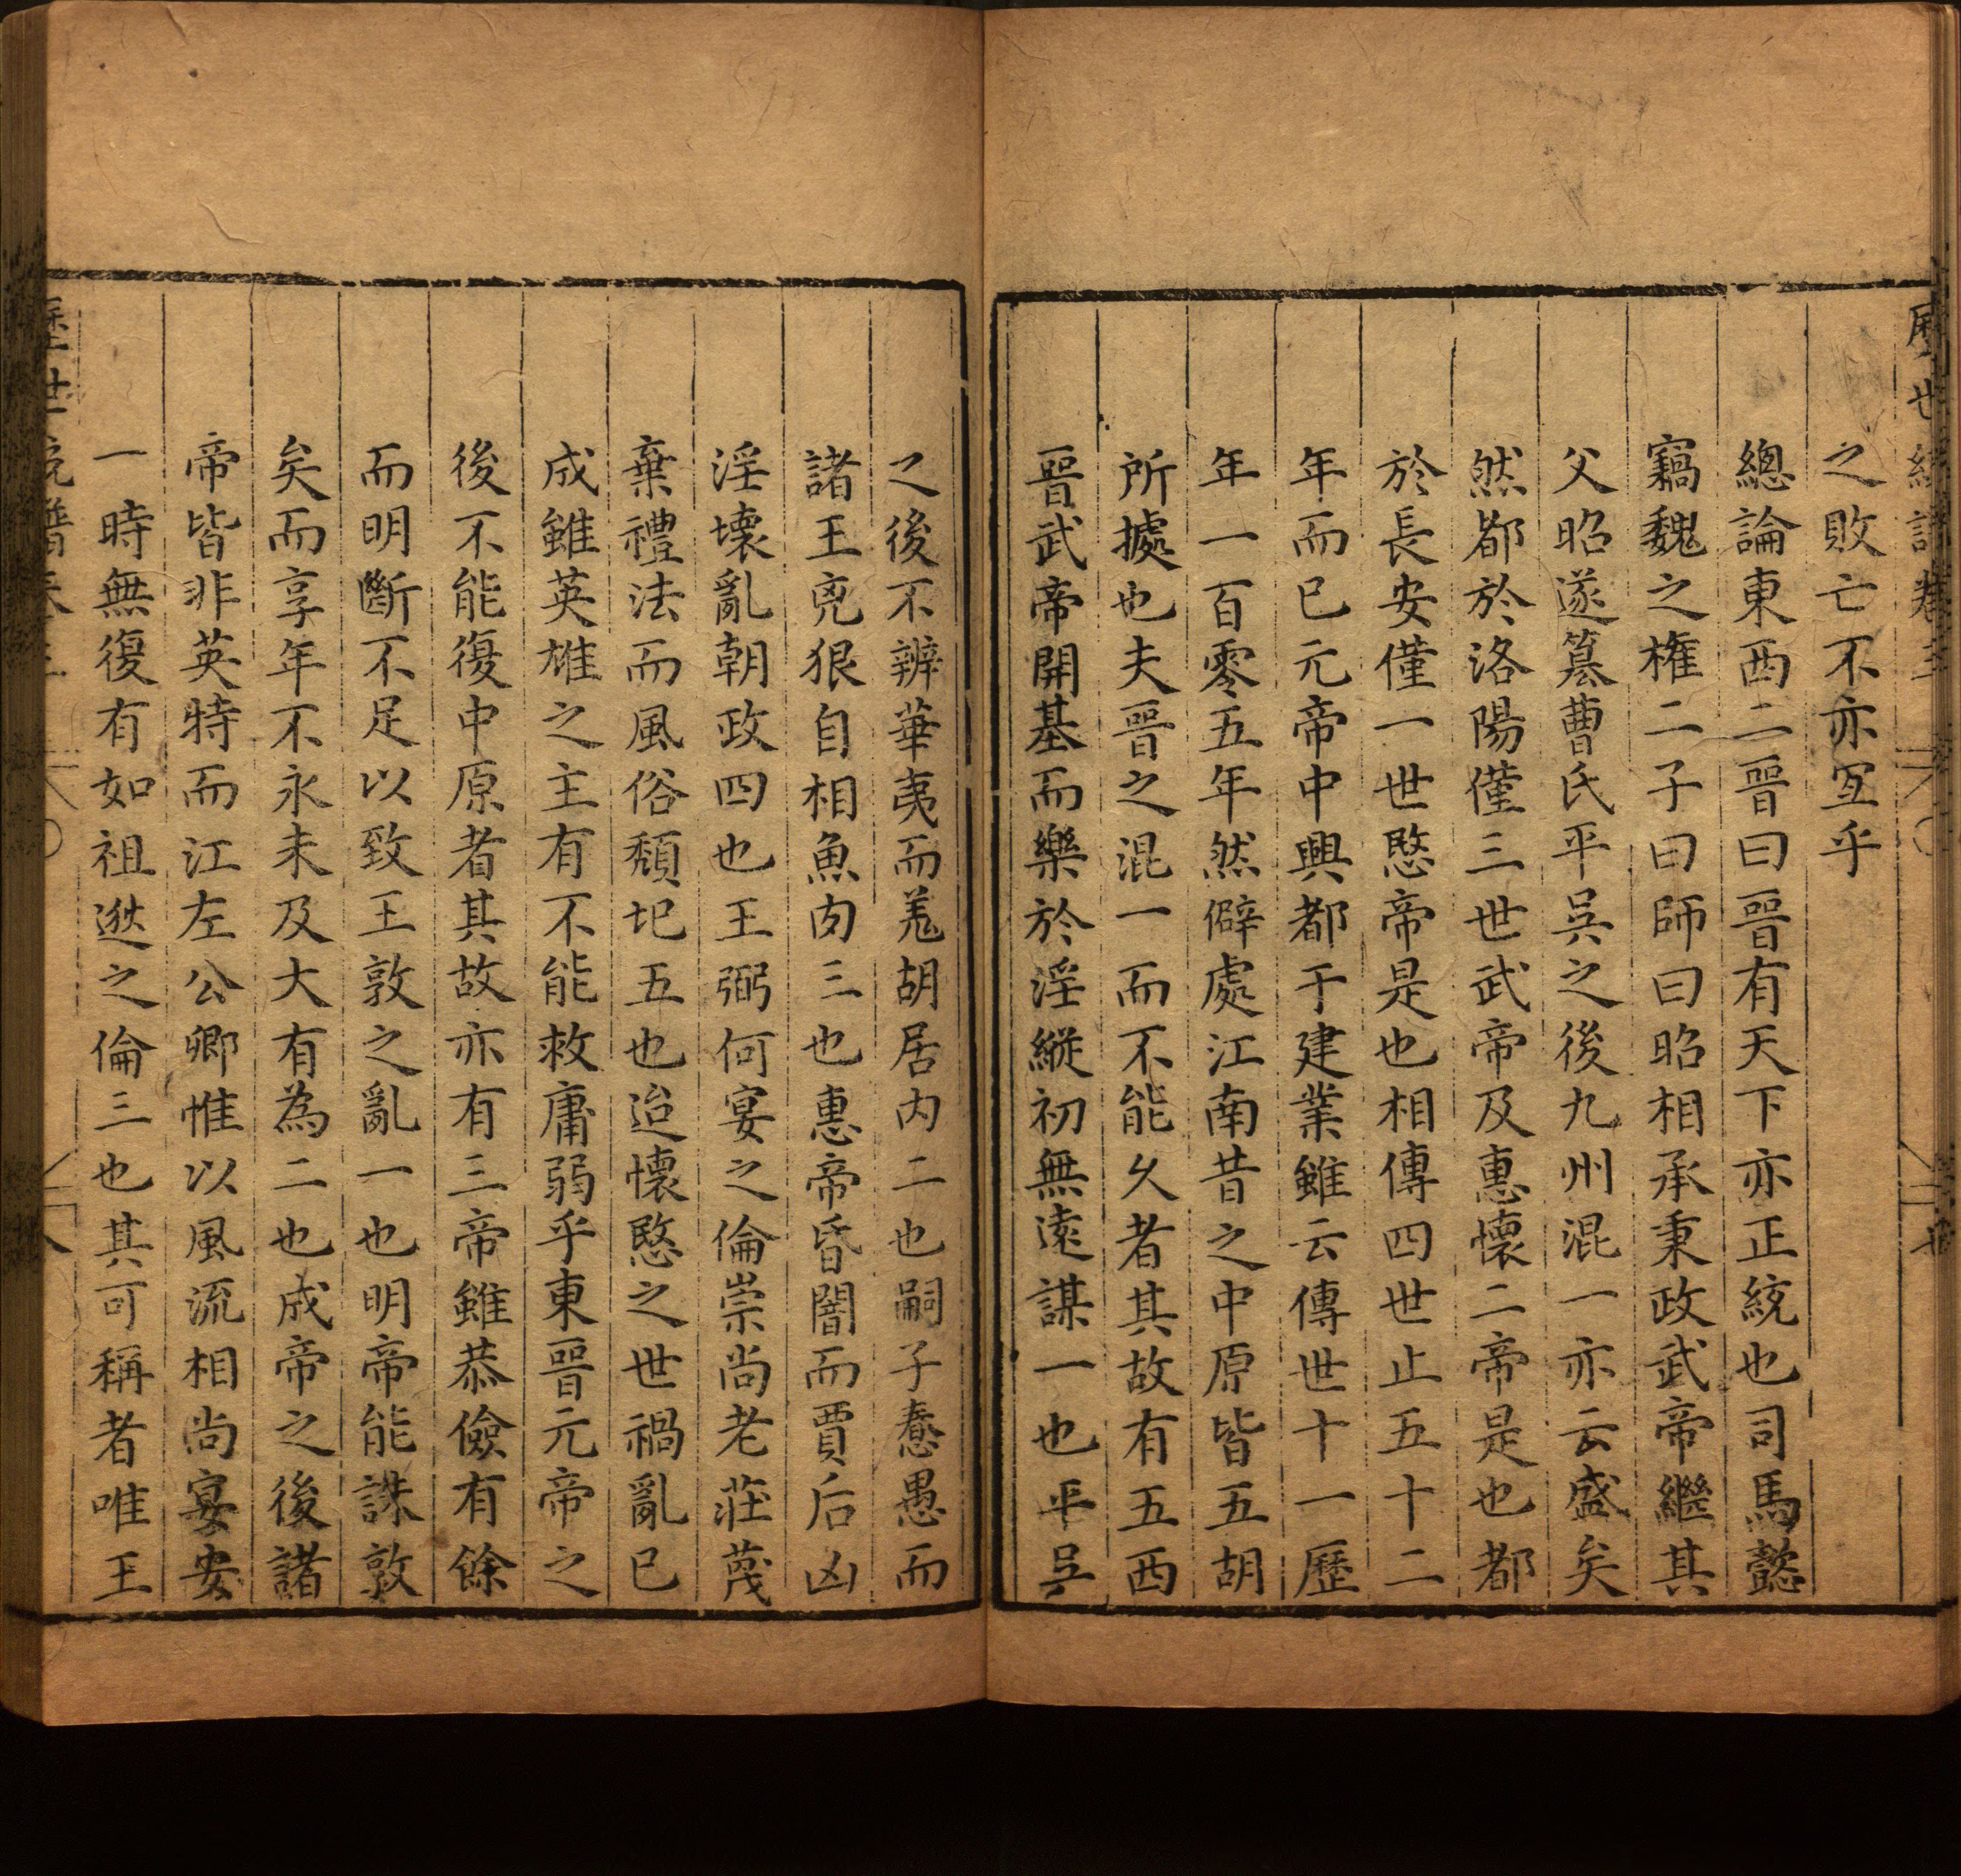 之敗亡不亦宐乎
總論東西二晉曰晉有天下亦正統也司馬懿
竊魏之權二子曰師曰昭相承秉政武帝繼其
父昭遂簒曹氏平吳之後九州混一亦云盛矣
然都於洛陽僅三世武帝及惠懷二帝是也都
於長安僅一世愍帝是也相傳四世止五十二
年而已元帝中興都于建業雖云傳世十一歷
年一百零五年然僻處江南昔之中原皆五胡
所據也夫晉之混一而不能久者其故有五西
晉武帝開基而樂於淫縱初無遠謀一也平吳
之後不辨華夷而羗胡居内二也嗣子憃愚而
諸王兇狠自相魚肉三也惠帝昏闇而賈后凶
淫壞亂朝政四也王弼何宴之倫崇尚老莊蔑
棄禮法而風俗頽圮五也迨懷愍之世禍亂已
成雖英雄之主有不能救庸弱乎東晉元帝之
後不能復中原者其故亦有三帝雖恭儉有餘
而明斷不足以致王敦之亂一也明帝能誅敦
矣而享年不永未及大有為二也成帝之後諸
帝皆非英特而江左公卿惟以風流相尚宴安
一時無復有如祖逖之倫三也其可稱者唯王